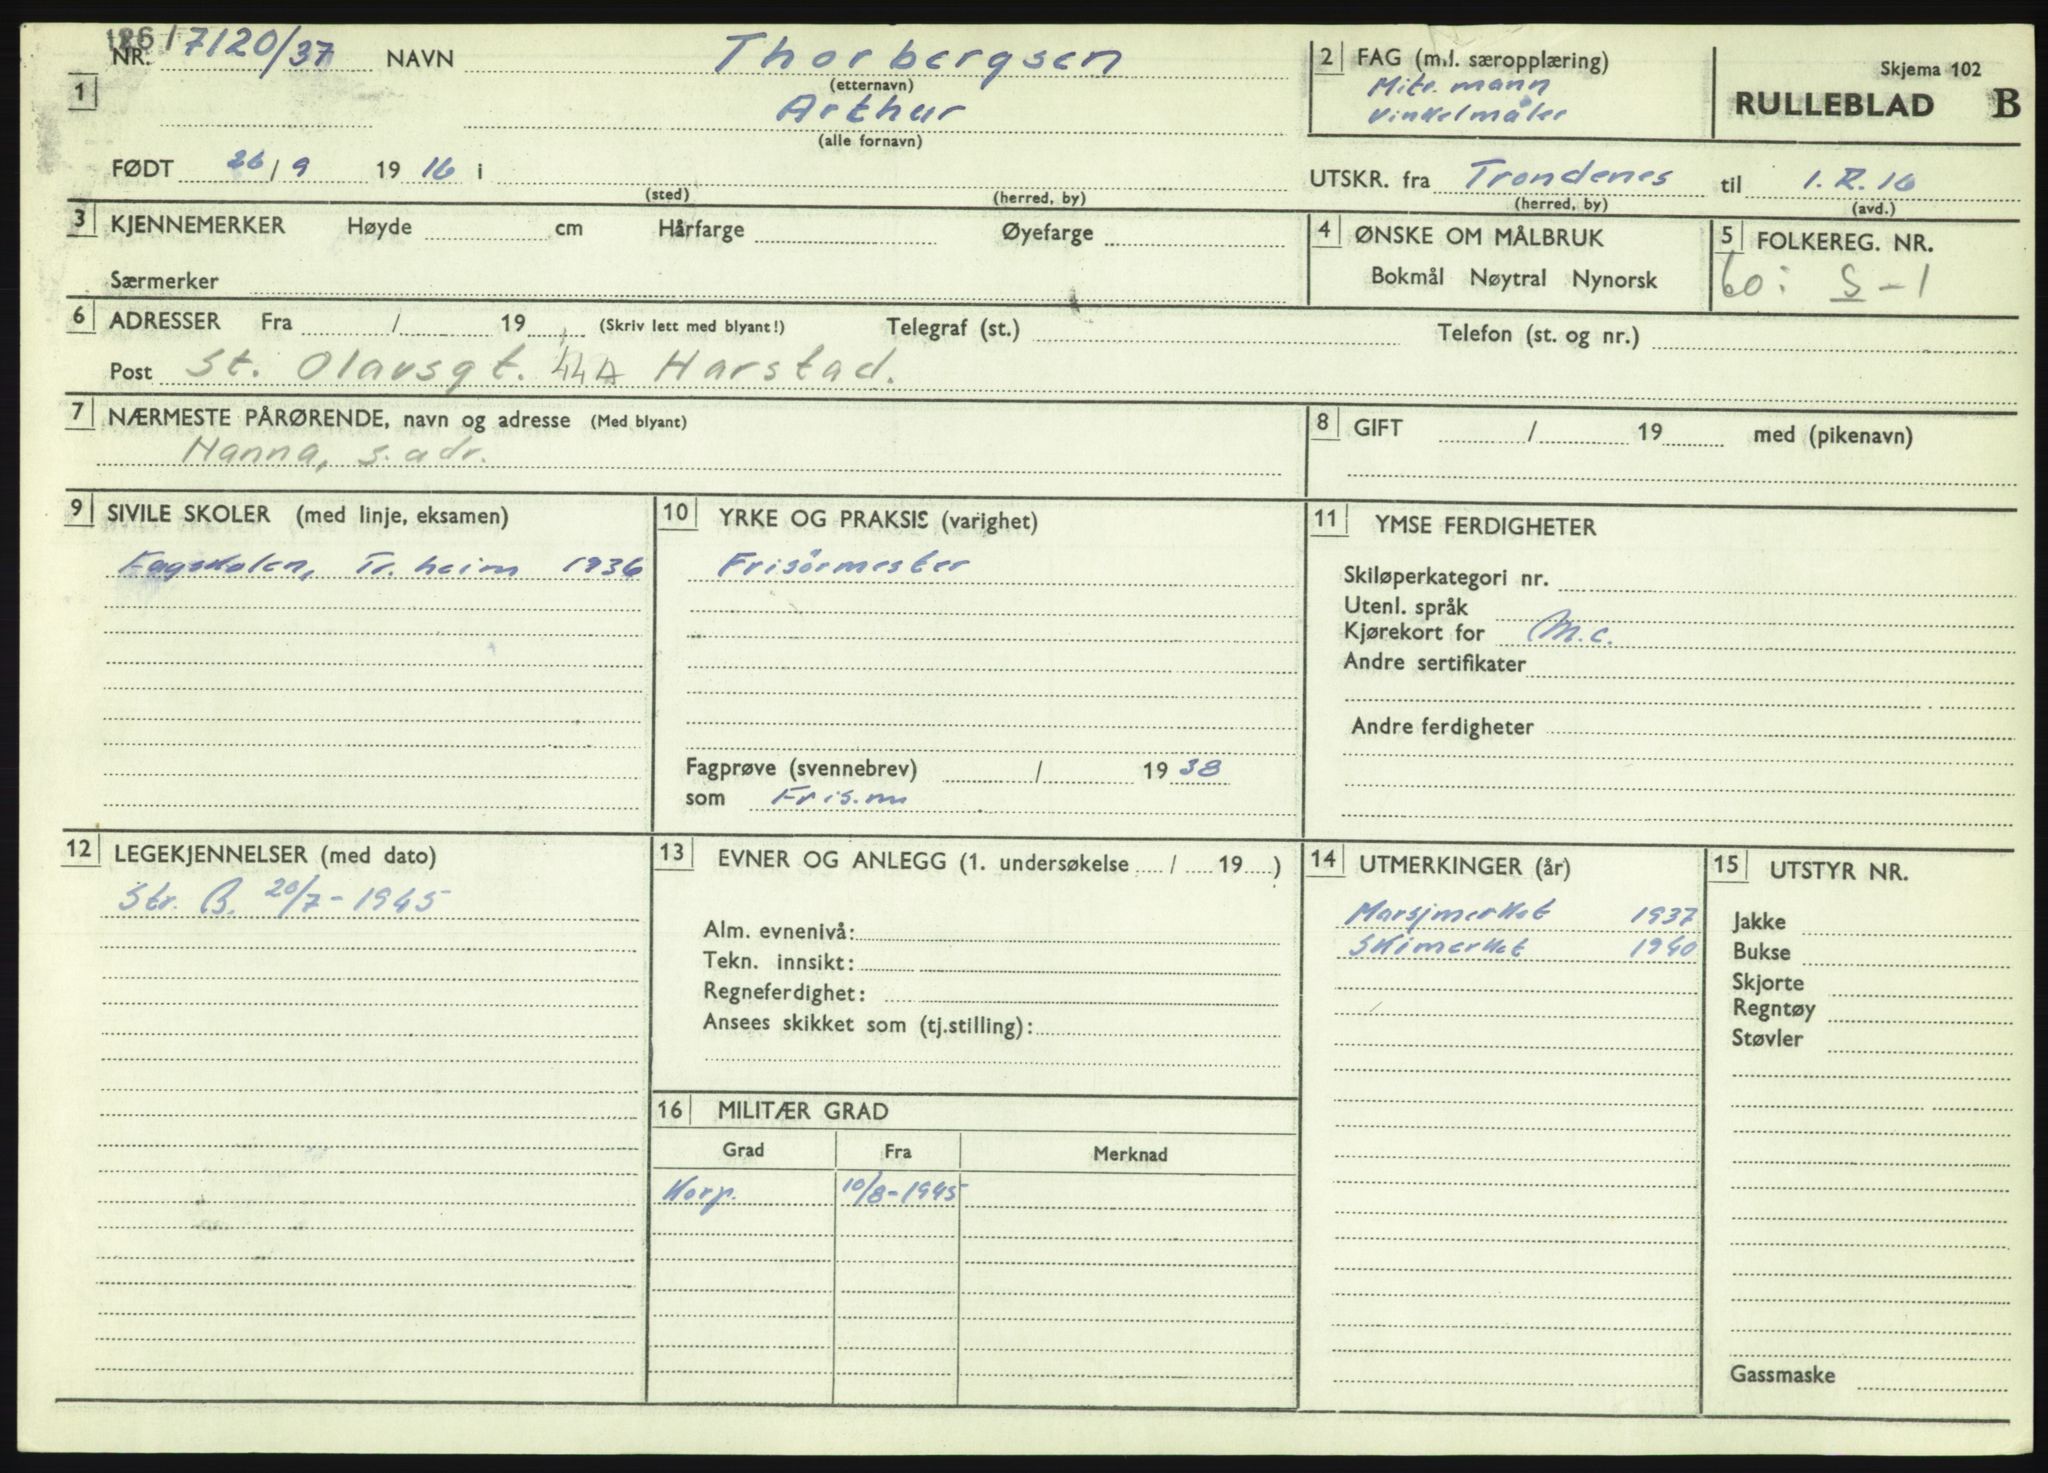 126/7120/37
NR. NAVN Thorbergsen
(etternavn)
1
Arthur
(alle fornavn)
FØDT 26/9 1916 i
(sted) (herred, by)
2 FAG (m.l. særopplæring)
Mitr. mann
Vinkelmåler
Skjema 102
RULLEBLAD B
UTSKR. fra Trondenes til I.R.16
(herred, by) (avd.)
3 KJENNEMERKER Høyde cm Hårfarge Øyefarge
Særmerker
4 ØNSKE OM MÅLBRUK
Bokmål Nøytral Nynorsk
5 FOLKEREG. NR.
60: S-1
6 ADRESSER Fra / 19 (Skriv lett med blyant!) Telegraf (st.) Telefon (st. og nr.)
Post St. Olavsgt. 44A Harstad.
7 NÆRMESTE PÅRØRENDE, navn og adresse (Med blyant)
Hanna, s. adr.
8 GIFT / 19 med (pikenavn)
9 SIVILE SKOLER (med linje, eksamen)
Fagskolen, Tr.heim 1936
10 YRKE OG PRAKSIS (varighet)
Frisörmester
Fagprøve (svennebrev) / 1938
som Fris.m
11 YMSE FERDIGHETER
Skiløperkategori nr.
Utenl. språk
Kjørekort for M.c.
Andre sertifikater
Andre ferdigheter
12 LEGEKJENNELSER (med dato)
Str. B. 20/7-1945
13 EVNER OG ANLEGG (1. undersøkelse / 19 )
Alm. evnenivå:
Tekn. innsikt:
Regneferdighet:
Ansees skikket som (tj.stilling):
14 UTMERKINGER (år)
Marsjmerket 1937
Skimerket 1940
15 UTSTYR NR.
Jakke
Bukse
Skjorte
Regntøy
Støvler
Gassmaske
16 MILITÆR GRAD
Grad Fra Merknad
Korp. 10/8-1945